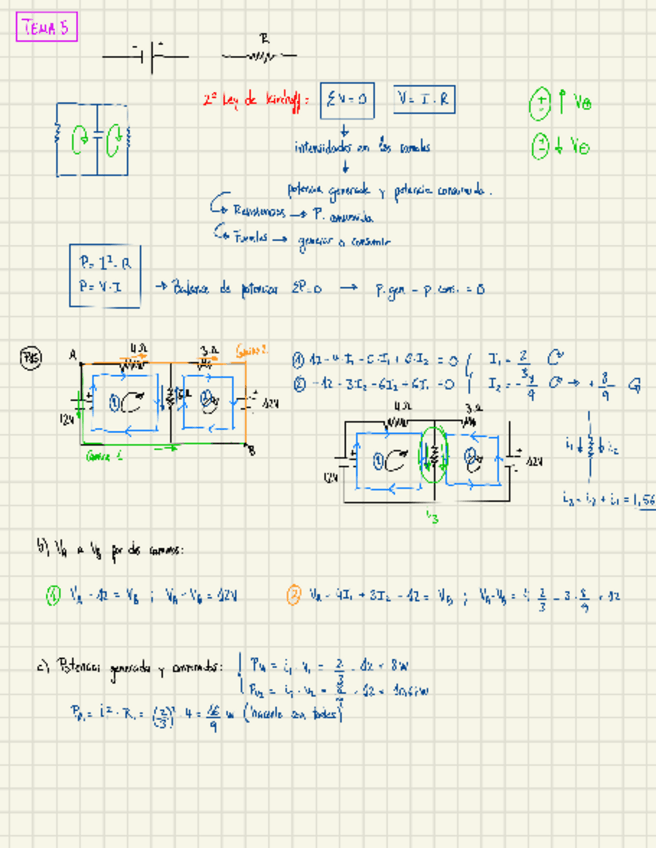 TEMA 5
R
2ª Ley de Kirchoff: ΣV=0 V = I · R
± ↑ V⊕
± ↓ V⊖
intensidades en las ramas
potencia generada y potencia consumida.
Resistencias → P. consumida
Fuentes → generar o consumir
P = I² · R
P = V · I
→ Balance de potencias ΣP=0 → P. gen - P cons. = 0
A 4Ω 3Ω Camino 2
12V 6Ω 12V
Camino 1 B
① 12-4I₁-6·I₁+6·I₂ = 0 { I₁ = 2/3
② -12-3I₂-6I₂+6I₁ = 0 { I₂ = -8/9 → + 8/9
4Ω 3Ω
12V 12V
i₃
i₁ i₂
i₃ = i₂ + i₁ = 1,56
b) VA a VB por dos caminos:
① VA - 12 = VB ; VA - VB = 12V
② VA - 4I₁ + 3I₂ - 12 = VB ; VA-VB = 4 2/3 - 3·8/9 + 12
c) Potencia generada y consumida: { PV1 = i₁ · V₁ = 2/3 · 12 = 8W
PV2 = i₂ · V₂ = 8/9 · 12 = 10,6W
PR1 = i² · R₁ = (2/3)² · 4 = 16/9 W (hacerlo con todas)